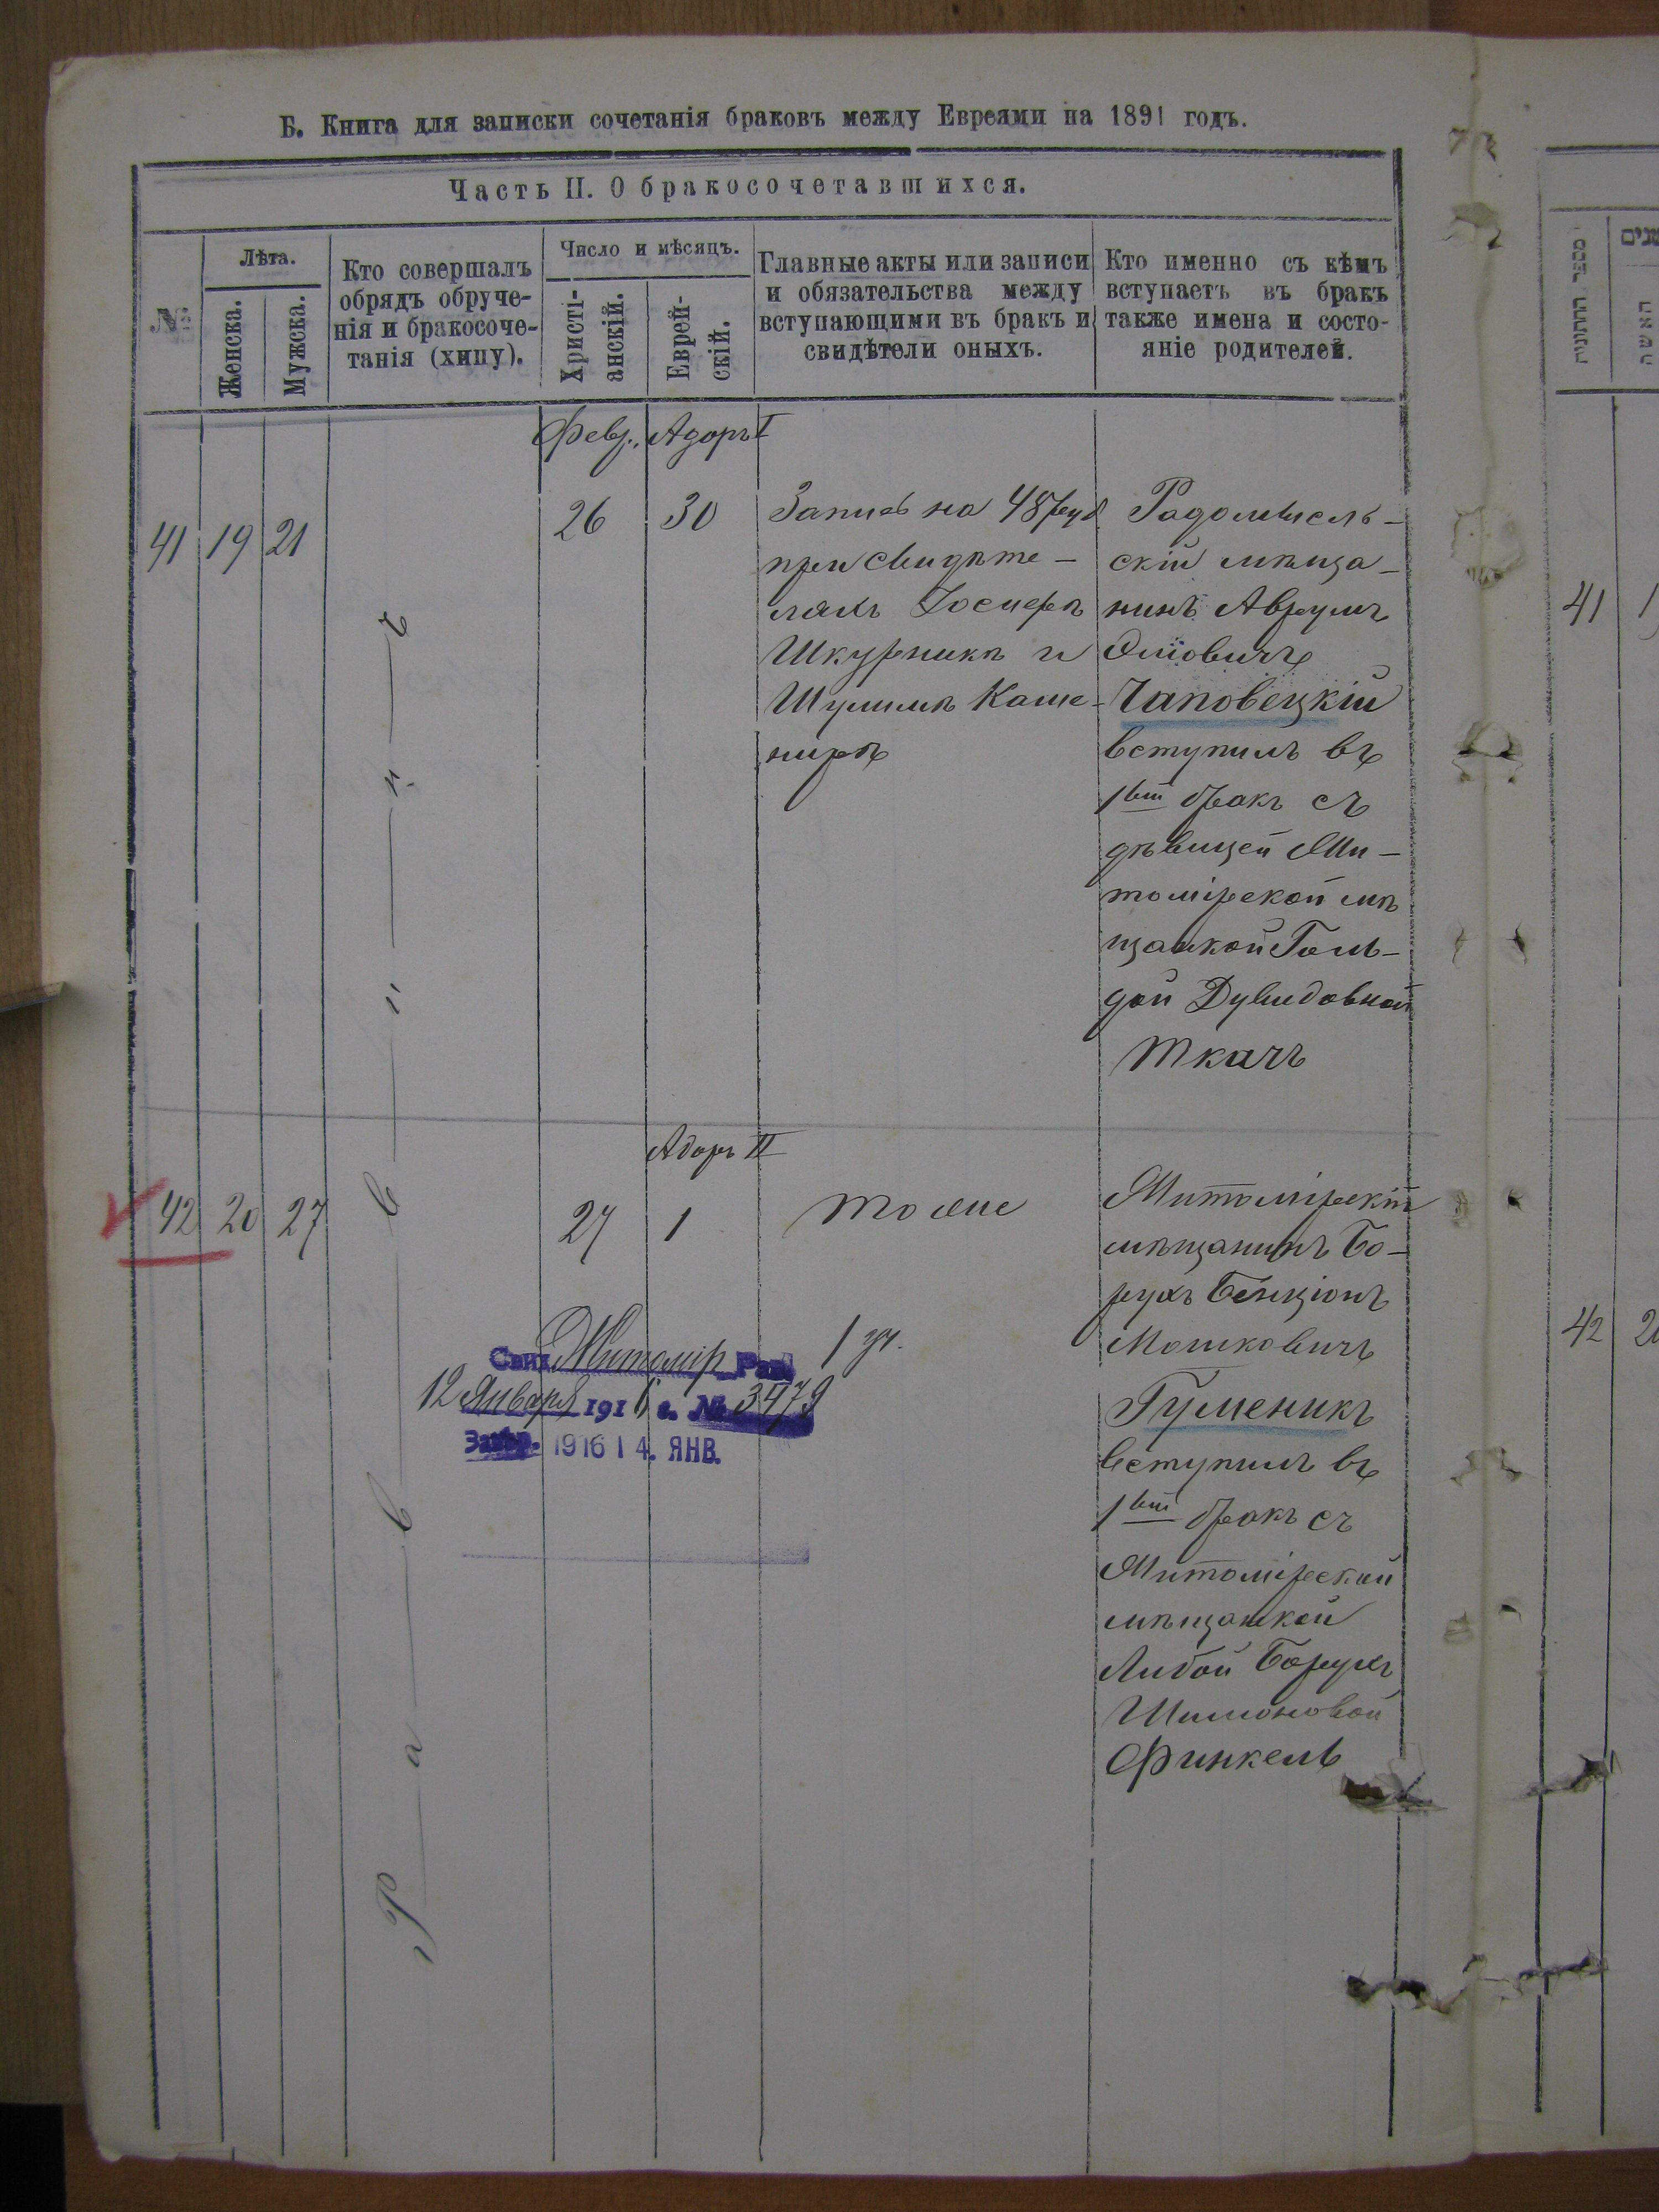 Б. Книга для записки сочетанія браковъ между Евреями на 1891 годъ.
Часть II. О бракосочетавшихся.
№
Лѣта.
Женска.
Мужска.
Кто совершалъ
обрядъ обруче-
нія и бракосоче-
танія (хипу).
Число и мѣсяцъ.
Христі-
анскій.
Еврей-
скій.
Главные акты или записи
и обязательства между
вступающими въ бракъ и
свидѣтели оныхъ.
Кто именно съ кѣмъ
вступаетъ въ бракъ
также имена и состо-
яніе родителей.
Февр. Адоръ I
41 19 21
26 30
Запись на 48 руб
при свидѣте-
ляхъ Іосифѣ
Шкурникѣ и
Шулимѣ Каше-
нирѣ
Радомысль-
скій мѣща-
нинъ Аврумъ
Чаповецкій
вступилъ въ
1вый бракъ съ
дѣвицей Жи-
томірской мѣ
щанкой Голь-
дой Дувидовной
Ткачъ
Адоръ II
42 20 27
27 1
тоже
Житомірскій
мѣщанинъ Бо-
рухъ Бенціонъ
Мошковичъ
Гуменикъ
вступилъ въ
1вый бракъ съ
Житомірской
мѣщанкой
Либой Борухъ
Шимоновой
Финкель
Раввинъ
1 эк.
Свид. Житомір. Рав.
12 Января 1916 г. № 3479
Завѣр. 1916 14. ЯНВ.
מספר החתונות
שנים
האשה
41
42